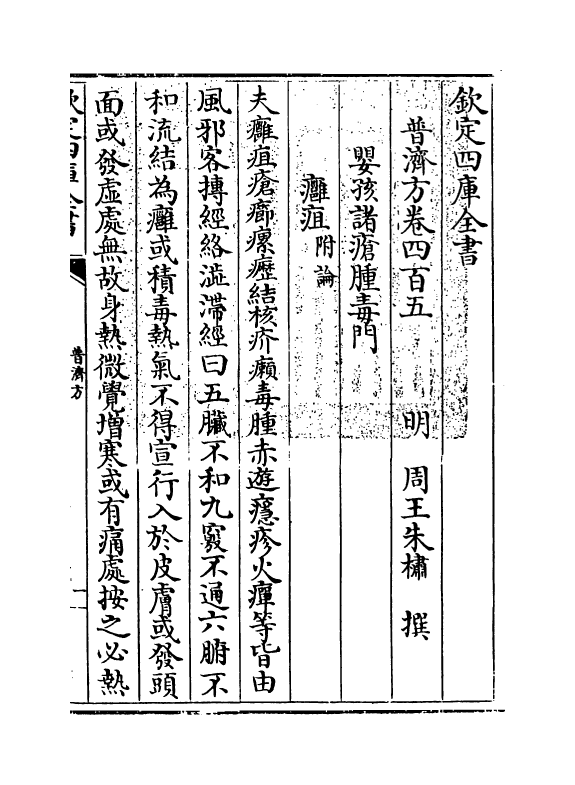 欽定四庫全書
普濟方卷四百五 明 周王朱橚 撰
嬰孩諸瘡腫毒門
癰疽附論
夫癰疽瘡癤瘰癧結核疥癩毒腫赤遊癮疹火癉等皆由
風邪客摶經絡澁滯經曰五臟不和九竅不通六腑不
和流結為癰或積毒熱氣不得宣行入於皮膚或發頭
面或發虛處無故身熱微覺增寒或有痛處按之必熱
欽定四庫全書
普濟方
一